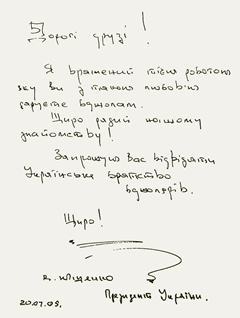 Дорогі друзі!
Я вражений тією роботою
яку ви з такою любов'ю
даруєте бджолам.
Щиро радий нашому
знайомству!
Запрошую Вас відвідати
Українське братство
бджолярів.
Щиро!
В. Ющенко
Президент України.
20.07.05.